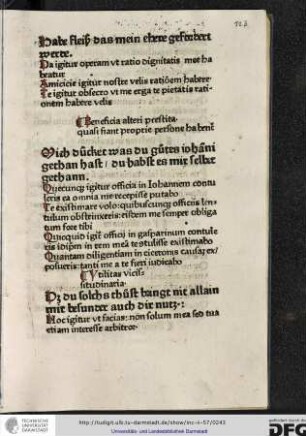 Habe fleiß das mein ehere gefürdert
werde.
Da igitur operam vt ratio dignitatis mee ha
beatur
Amicicie igitur nostre velis rationem habere
Te igitur obsecro vt me erga te pietatis rati
onem habere velis
Beneficia alteri prestita
quasi fiant proprie persone habent
Mich dücket was du gütes iohāni
gethan hast / du habst es mir selbst
gethann.
Quecunqz igitur officia in Iohannem contu
leris ea omnia me recepisse putabo
Te existimare volo: quibuscunqz officiis len
tulum obstrinxeris: eisdem me semper obliga
tum fore tibi
Quicquid igit officij in gasparinum contule
ris idipm in rem meā te stulisse existimabo
Quantam diligentiam in ciceronis causa ex
posueris: tanti me a te fieri iudicabo
Vtilitas vicis
situdinaria
Dz du solchs thüst langt nit allain
mir besunder auch dir nutz:
Hoc igitur vt facias: non solum mea sed tua
etiam interesse arbitror
TECHNISCHE
UNIVERSITÄT
DARMSTADT
http://tudigit.ulb.tu-darmstadt.de/show/inc-ii-57/0243
Universitäts- und Landesbibliothek Darmstadt
gefördert durch die
DFG